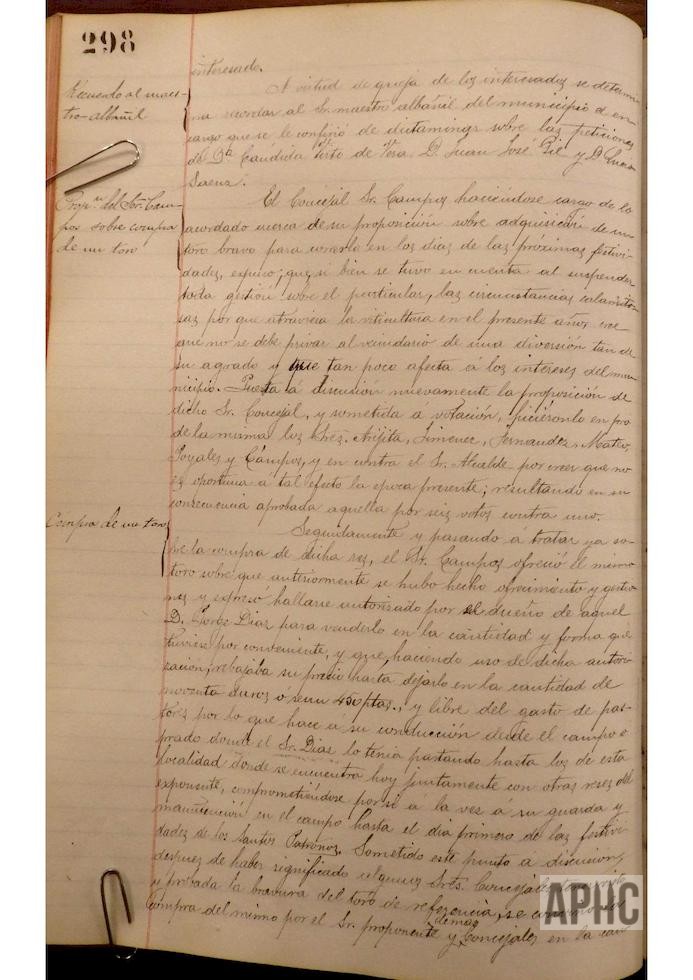 298
interesado.
Recuerdo al maes-
tro-albañil
A virtud de queja de los interesados se determi-
na recordar al Sr. maestro albañil del municipio el en-
cargo que se le confirió de dictaminar sobre las peticiones
de Dª Cándida Pinto de Vera, D. Juan José Pie y D. Lucas
Saenz.
Propn. del Sr. Cam-
pos sobre compra
de un toro
El Concejal Sr. Campos haciéndose cargo de lo
acordado acerca de su proposición sobre adquisición de un
toro bravo para correrlo en los dias de las próximas festivi-
dades, expuso; que si bien se tuvo en cuenta al suspender
toda gestión sobre el particular, las circunstancias calamito-
sas por que atraviesa la viticultura en el presente año, cree
que no se debe privar al vecindario de una diversión tan de
su agrado y que tan poco afecta á los intereses del mu-
nicipio. Puesta á discusión nuevamente la proposición de
dicho Sr. Concejal, y sometida a votación, hiciéronlo en pro
de la misma los Sres. Arpita, Jimenez, Fernandez, Mateo,
Poyales y Campos, y en contra el Sr. Alcalde por creer que no
es oportuna á tal efecto la epoca presente; resultando en su
consecuencia aprobada aquella por seis votos contra uno.
Compra de un toro
Seguidamente y pasando á tratar ya so-
bre la compra de dicha res, el Sr. Campos ofreció el mismo
toro sobre que anteriormente se hubo hecho ofrecimiento y gestio-
nes y expresó hallarse autorizado por el dueño de aquel
D. Jorge Diaz para venderlo en la cantidad y forma que
tuviese por conveniente, y que, haciendo uso de dicha autori-
zación, rebajaba su precio hasta dejarlo en la cantidad de
noventa duros ó sean 450 ptas., y libre del gasto de pas-
tores por lo que hace á su conducción desde el campo ó
prado donde el Sr. Diaz lo tenia pastando hasta los de esta
localidad donde se encuentra hoy juntamente con otras reses del
exponente, comprometiéndose por si á la vez á su guarda y
manutención en el campo hasta el dia primero de las festivi-
dades de los Santos Patronos. Sometido este punto a discusión,
despues de haber significado algunos Sres. Concejales
y probada la bravura del toro de referencia, se
compra del mismo por el Sr. proponente y demas Concejales en la can-
APHC